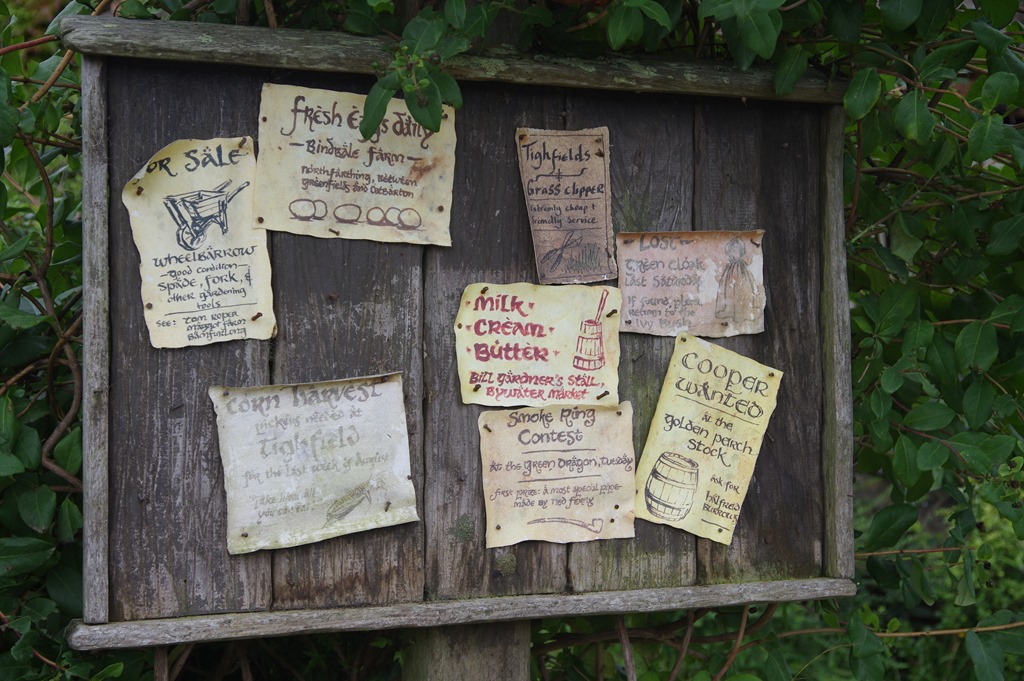 OR SALE
WHEELBARROW
-good condition-
spade, fork, &
other gardening
tools
SEE: TOM ROPER
MAGGOT FARM
fresh Eggs daily
-Bindbale farm-
northfarthing, between
greenfields and Oatbarton
Tighfields
+
Grass clipper
Extremly cheap +
friendly Service
LOST
Green cloak
Last Saturday
If found, please
return to the
Ivy Bush
MILK·
·CREAM·
BUTTER·
BILL GARDNER'S STALL,
BYWATER MARKET
CORN HARVEST
pickers needed at
Tighfield
for the last week of
Take home all
you can eat
Smoke Ring
Contest
At the Green Dragon, Tuesday
first prize: a most special pipe
made by Ned
COOPER
WANTED
at the
golden perch
STOCK
ASK FOR
HILFRED
BURROWS